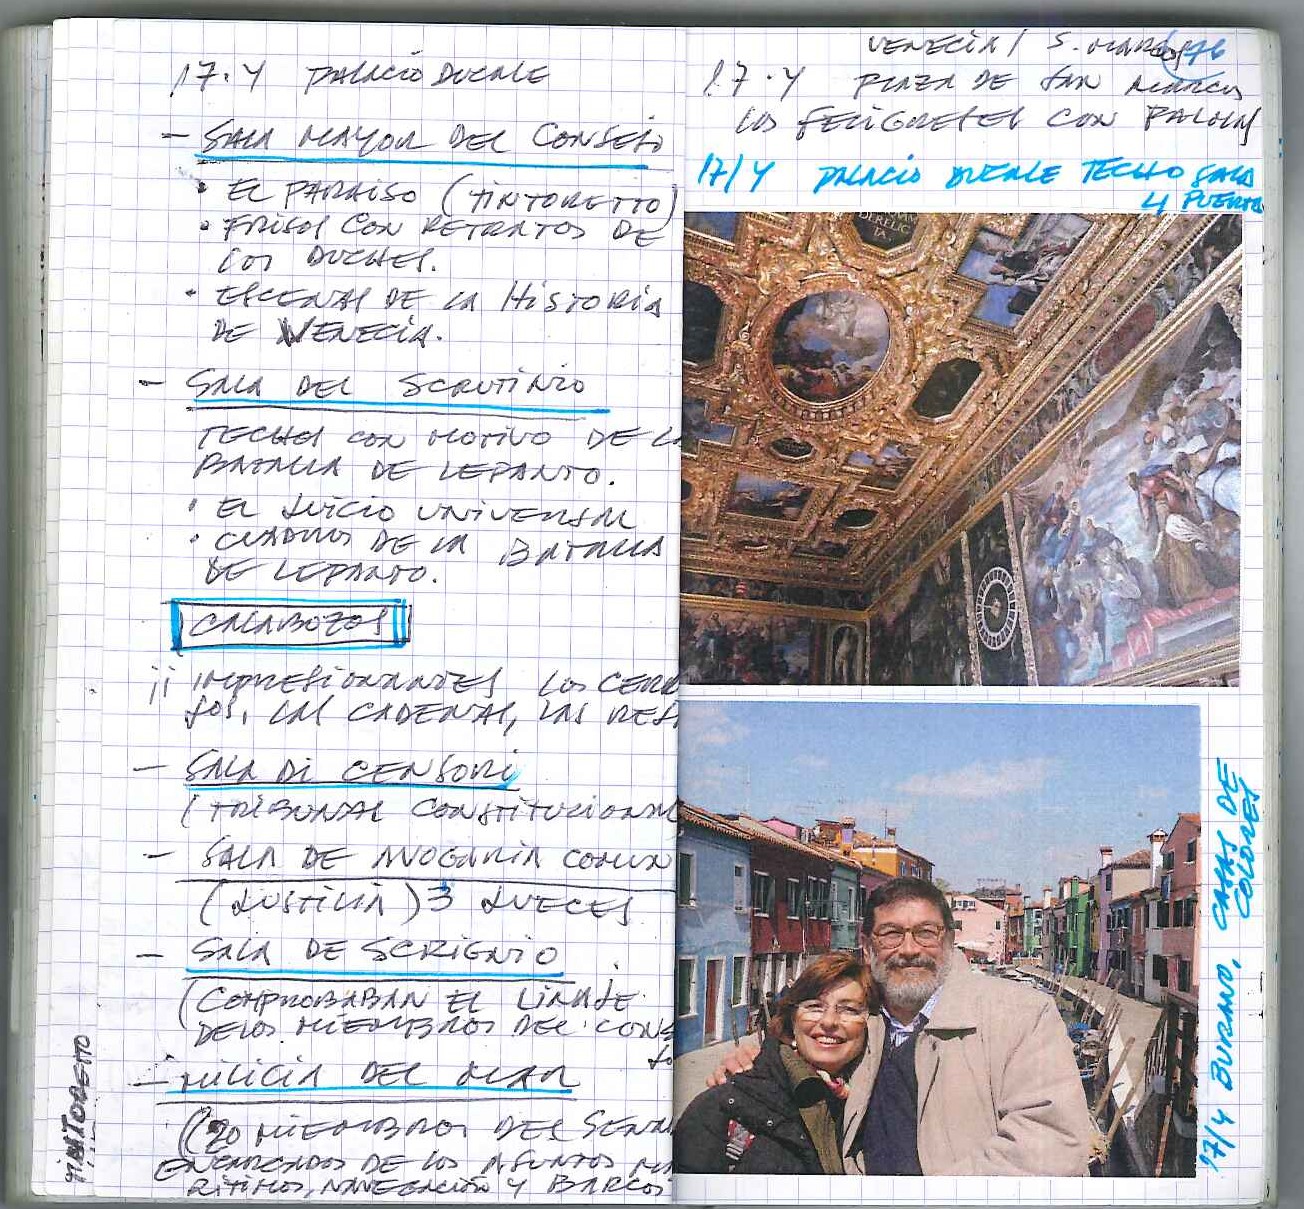 17·4 PALACIO DUCALE
- SALA MAYOR DEL CONSEJO
• EL PARAISO (TINTORETTO)
• FRISOS CON RETRATOS DE
LOS DUCHES.
• ESCENAS DE LA HISTORIA
DE VENECIA.
- SALA DEL SCRUTINIO
TECHOS CON MOTIVO DE LA
BATALLA DE LEPANTO.
• EL JUICIO UNIVERSAL
• CUADROS DE LA BATALLA
DE LEPANTO.
CALABOZOS
¡¡ IMPRESIONANTES LOS CERRO
JOS, LAS CADENAS, LAS REJ
- SALA DI CENSORI
(TRIBUNAL CONSTITUCIONAL
- SALA DE AVOGARIA COMUN
(JUSTICIA) 3 JUECES
- SALA DE SCRIGNIO
(COMPROBABAN EL LINAJE
DE LOS MIEMBROS DEL CONSE
JO
- MILICIA DEL MAR
(20 MIEMBROS DEL SENA
ENCARGADOS DE LOS ASUNTOS MA
RITIMOS, NAVEGACIÓN Y BARCOS
TINTORETTO
VENECIA / S. MARCOS 76
17·4 PLAZA DE SAN MARCOS
LOS FELIGRESES CON PALMAS
17/4 PALACIO DUCALE TECHO SALA
4 PUERTAS
DERELIC
TA
17/4 BURANO, CASAS DE
COLORES